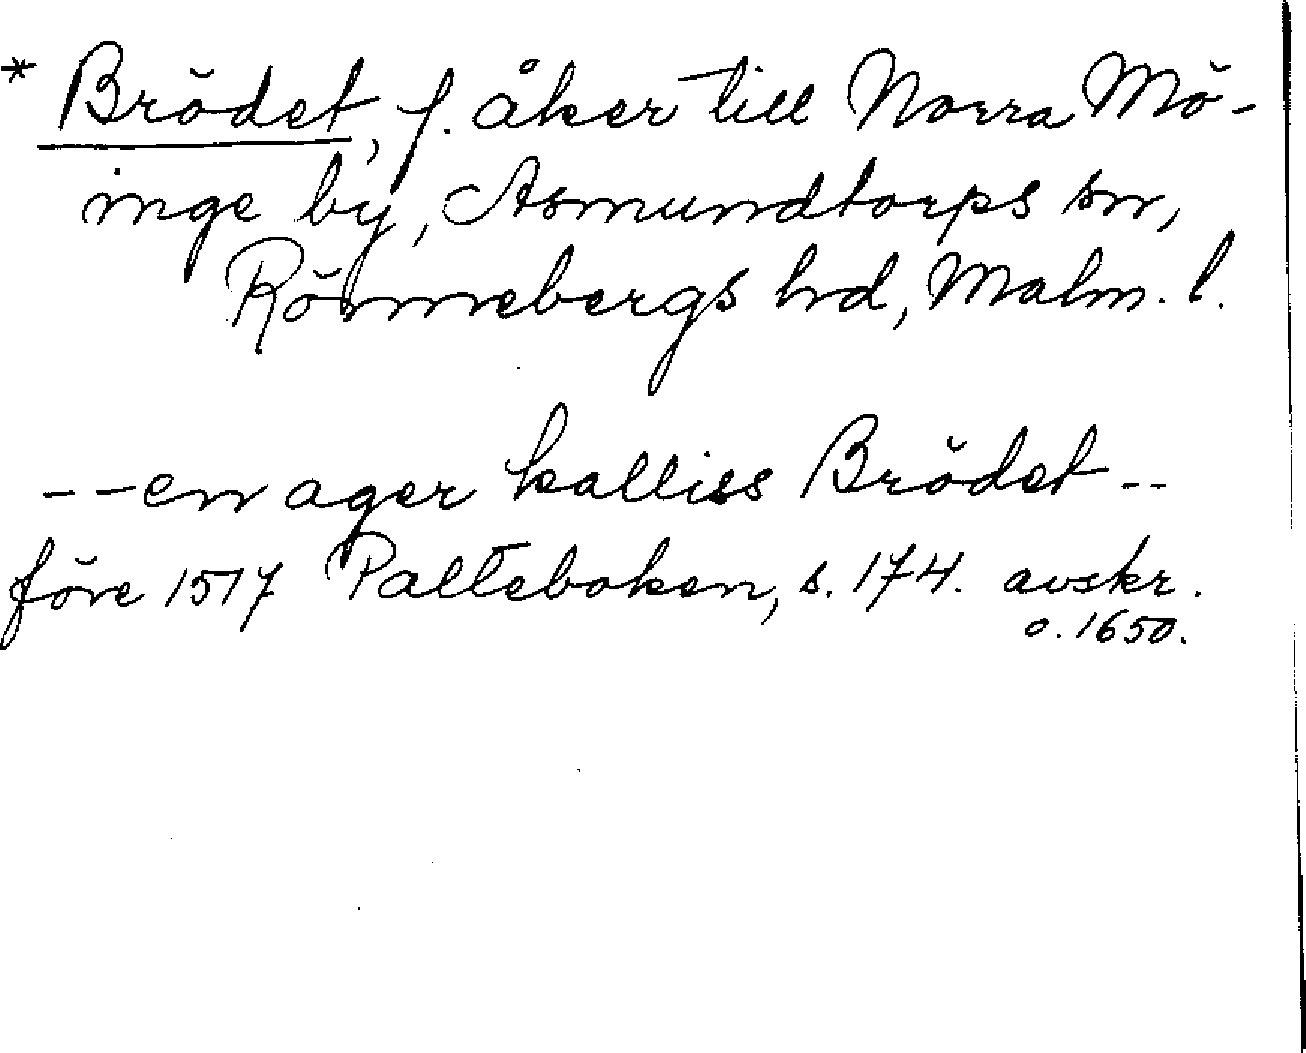 * Brödet, f. åker till Norra Mö-
inge by, Asmundtorps sn,
Rönnebergs hd, Malm. l.
-- en ager kalliss Brödet --
före 1517 Palteboken, s. 174. avskr.
o. 1650.